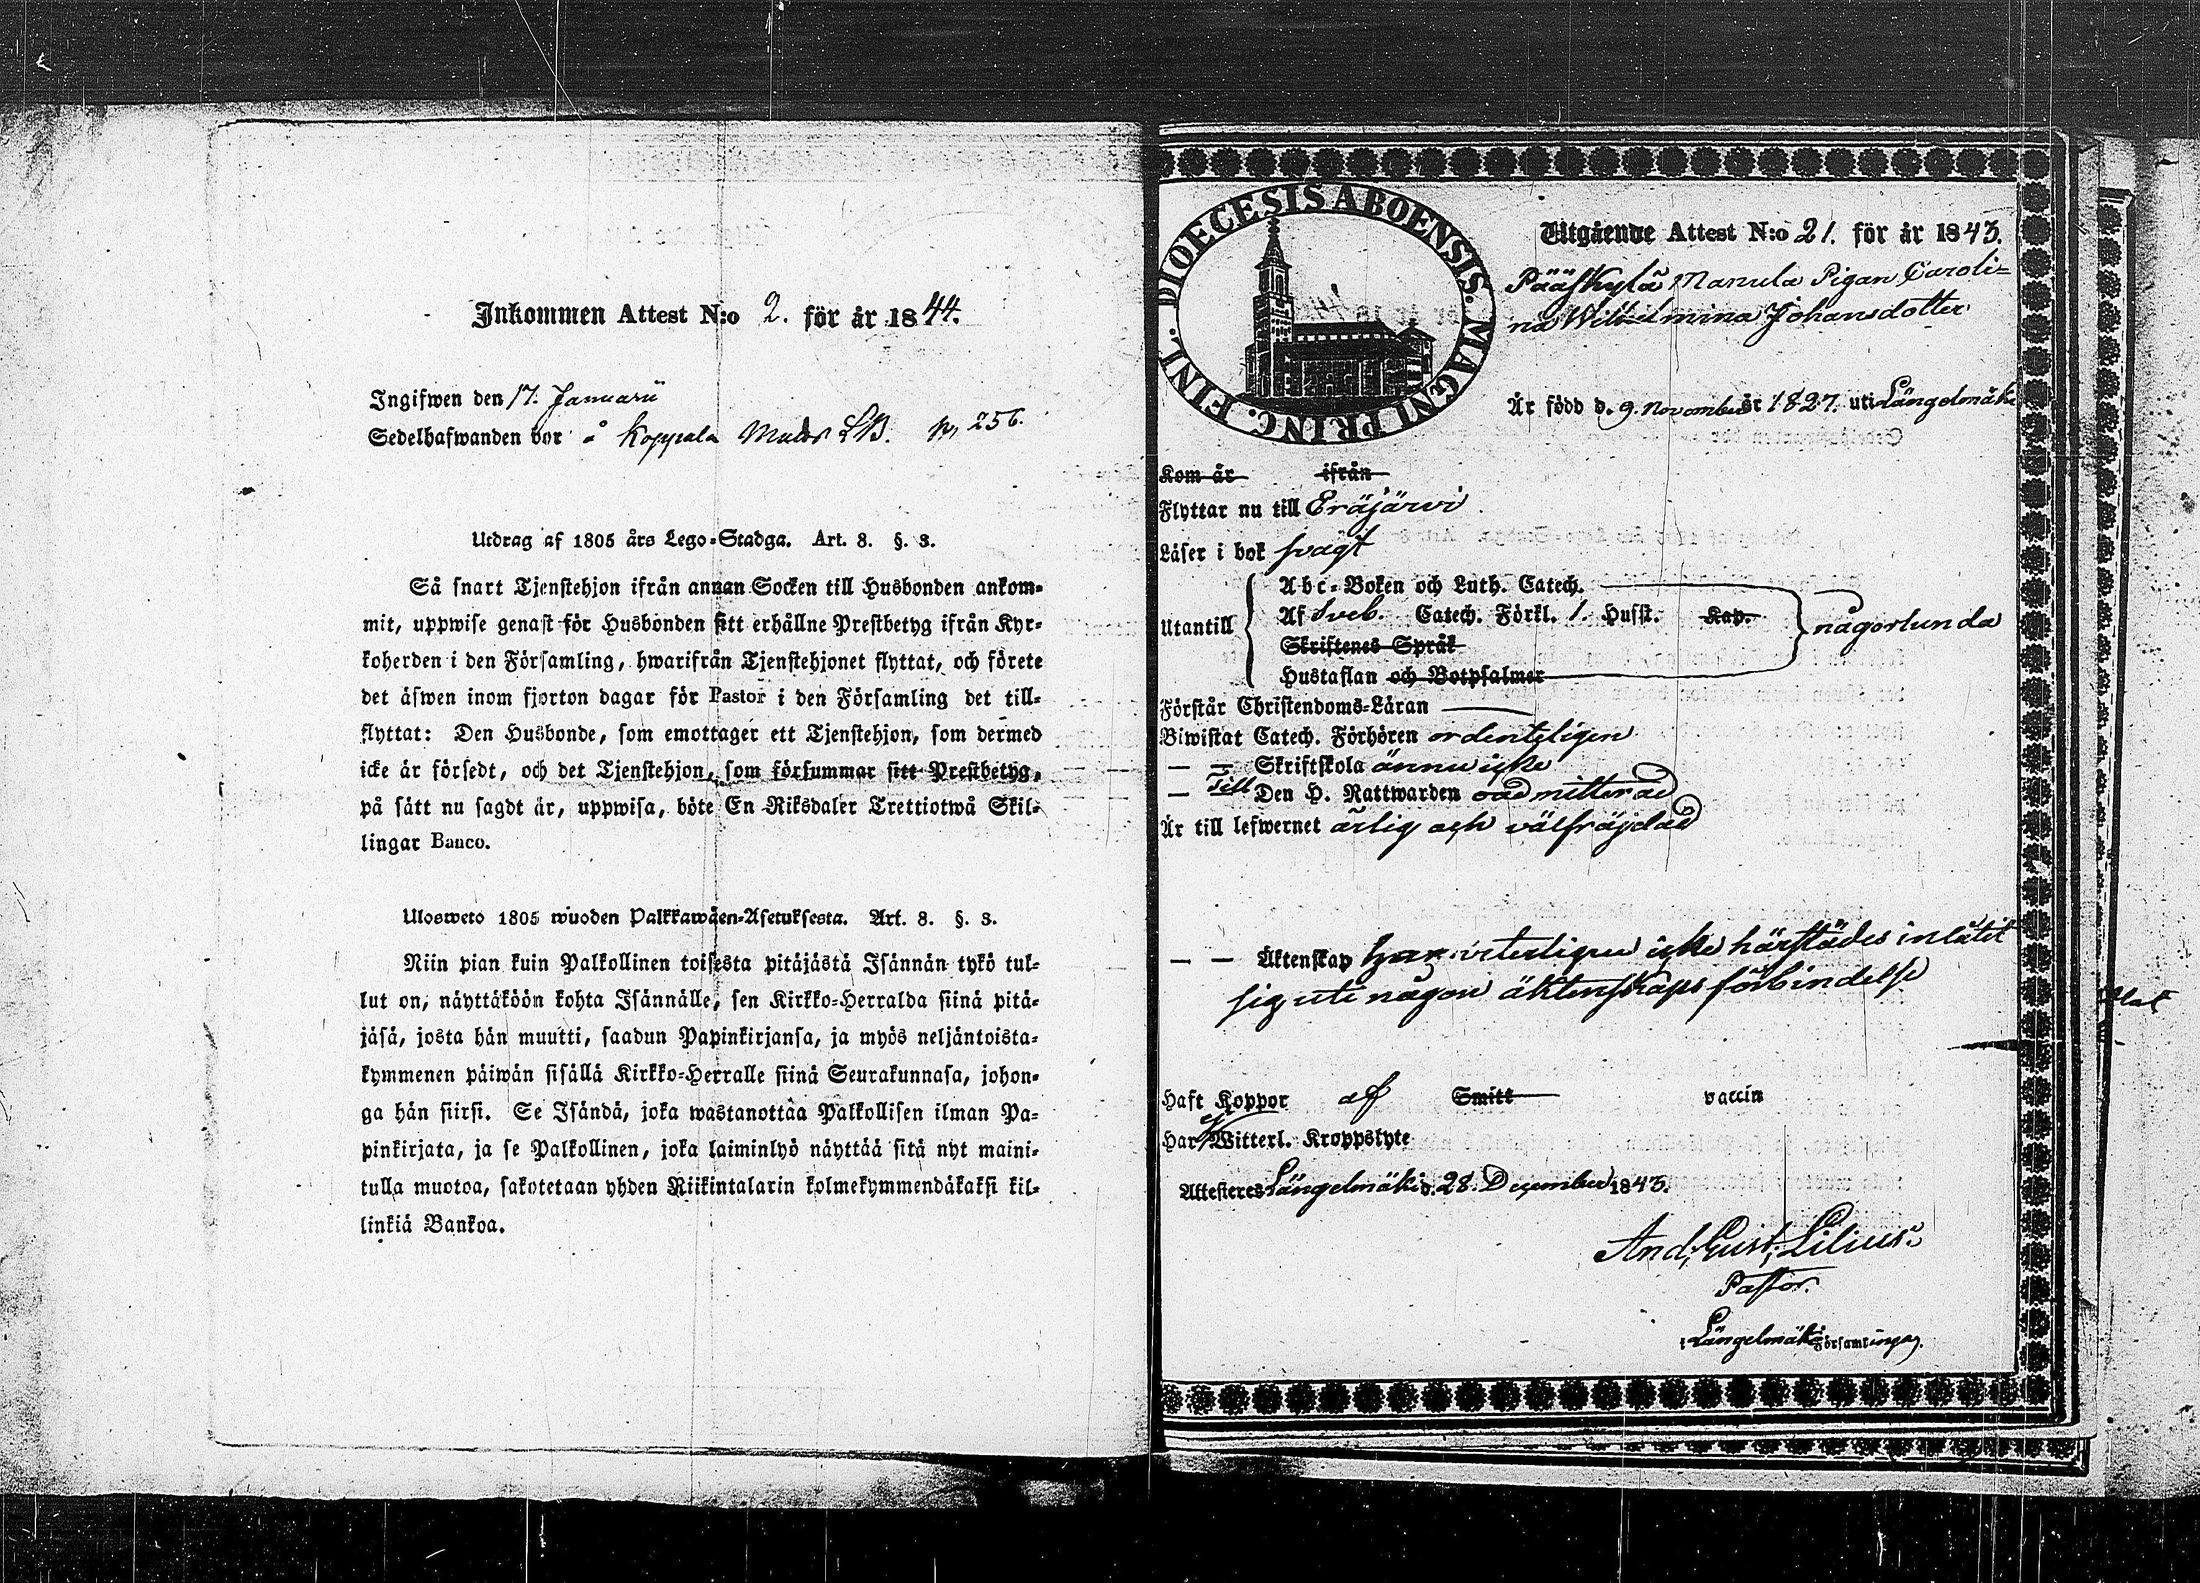 Inkommen Attest N:o 2. för år 1844.
Ingifwen den 17. Januarii
Sedelhafwanden bor å Koppala LB. 256.
Utdrag af 1805 års Lego-Stadga. Art. 8. §. 3.
Så snart Tjenstehjon ifrån annan Socken till Husbonden ankom-
mit, uppwise genast för Husbonden sitt erhållne Prestbetyg ifrån Kyr-
koherden i den Församling, hwarifrån Tjenstehjonet flyttat, och förete
det äfwen inom fjorton dagar för Pastor i den Församling det till-
flyttat: Den Husbonde, som emottager ett Tjenstehjon, som dermed
icke är försedt, och det Tjenstehjon, som försummar sitt Prestbetyg,
på sätt nu sagdt är, uppwisa, böte En Riksdaler Trettiotwå Skil-
lingar Banco.
Ulosweto 1805 wuoden Palkkawäen-Asetuksesta. Art. 8. §. 3.
Niin pian kuin Palkollinen toisesta pitäjästä Isännän tykö tul-
lut on, näyttäköön kohta Isännälle, sen Kirkko-Herralda siinä pitä-
jäsä, josta hän muutti, saadun Papinkirjansa, ja myös neljäntoista-
kymmenen päiwän sisällä Kirkko-Herralle siinä Seurakunnasa, johon-
ga hän siirsi. Se Isändä, joka wastanottaa Palkollisen ilman Pa-
pinkirjata, ja se Palkollinen, joka laiminlyö näyttää sitä nyt maini-
tulla muotoa, sakotetaan yhden Riikintalarin kolmekymmendäkaksi kil-
linkiä Bankoa.
DIOECESIS ABOENSIS. MAGNI PRINC. FINL.
Utgående Attest N:o 21. för år 1843.
Pääskylä Manula Pigan Caroli-
na Wilhelmina Johansdotter
Är född d. 9 November år 1827. uti Längelmäki
Kom år ifrån
Flyttar nu till Eräjärwi
Läser i bok svagt
Abc-Boken och Luth. Catech.
Utantill Af Sveb. Catech. Förkl. 1. Husst. Kap. någorlunda
Skriftenes Språk
Hustaflan och Botpsalmer
Förstår Christendoms-Läran
Biwistat Catech. Förhören ordenteligen
— — Skriftskola ännu icke
— Till Den H. Nattwarden oadmitterad
Är till lefwernet ärlig och välfräjdad
— — Äktenskap har veterligen icke härstädes inlåtit
sig uti någon äktenskaps förbindelse
Haft Koppor af Smitt vaccin
Har Witterl. Kroppslyte
Attesteres Längelmäki d. 28. December 1843.
And. Gust. Lilius.
Pastor.
i Längelmäki Församlingar.